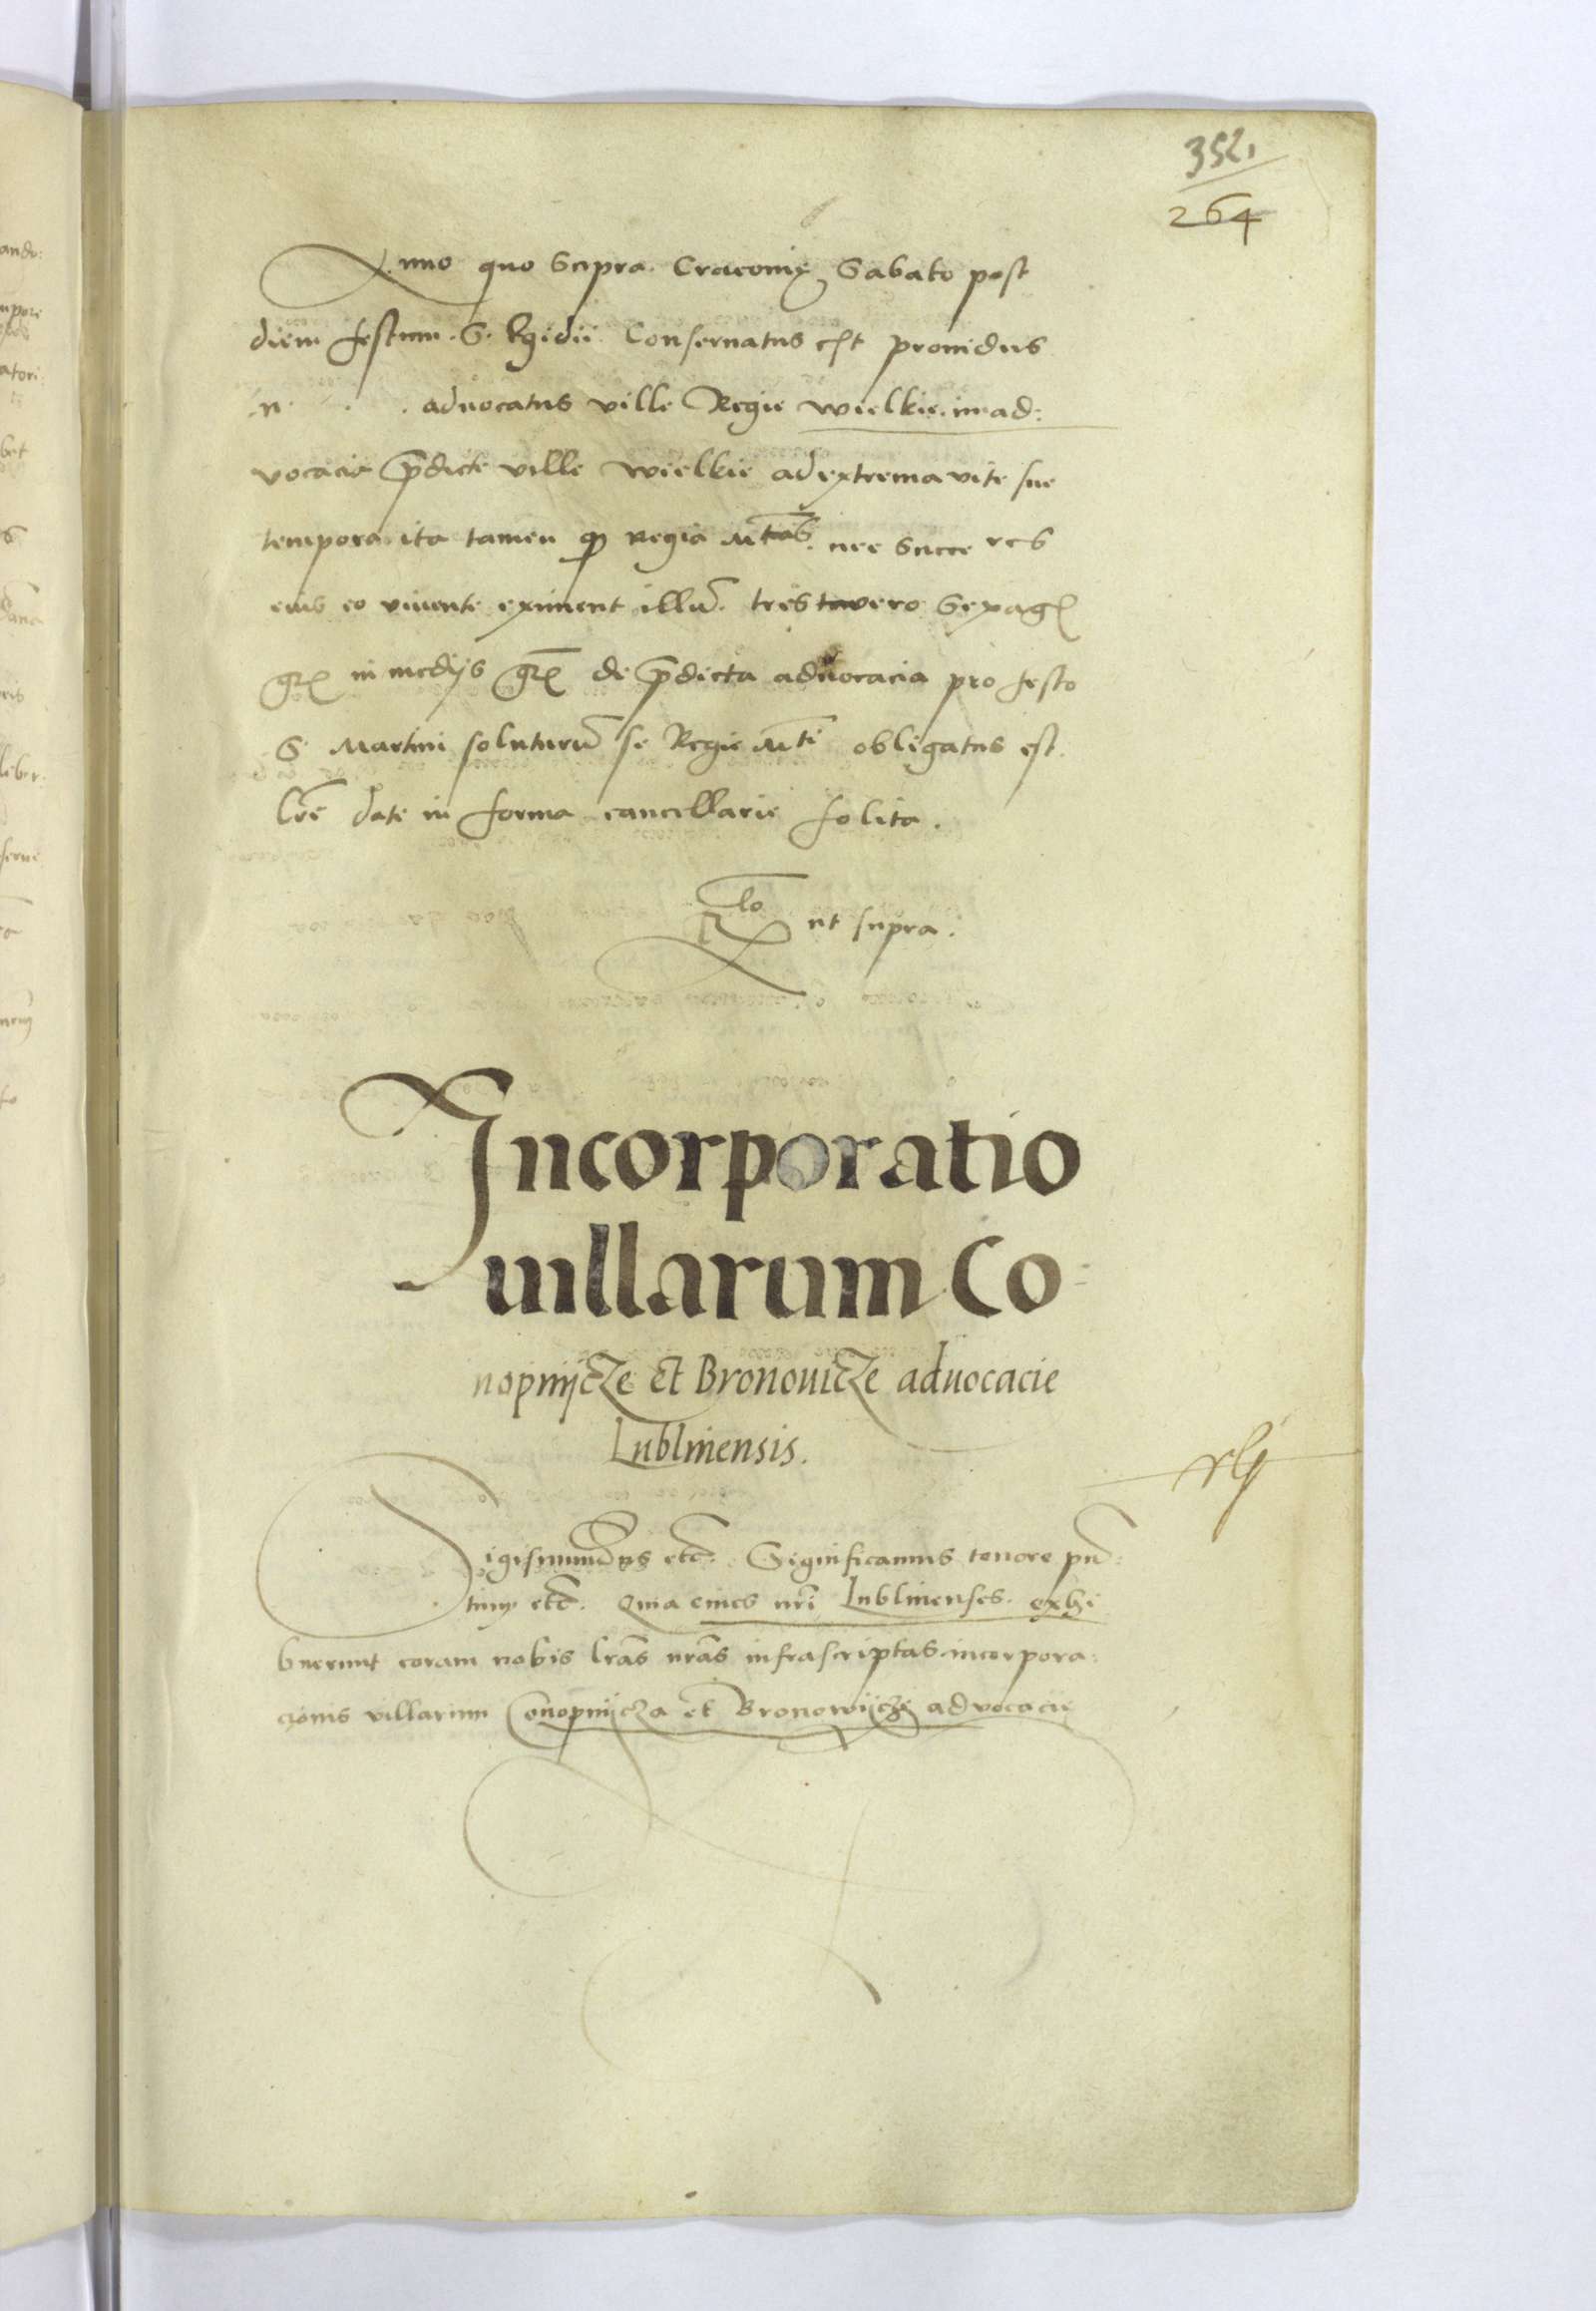 352.
264
Anno quo Supra. Cracovię Sabato post
diem festum. S. Egidii Conservatus est providus
.n. . . advocatus ville Regie wielkie in ad:
vocacia p̄dicte ville wielkie ad extrema vite sue
tempora ita tamen q̄ Regia Mtas. nec Succe res
eius eo vivente eximent illū. tres tavero Sexagͤ
grͤ in medijs grͤ de p̄dicta advocacia pro festo
S. Martini soluturū se Regie Mti obligatus est.
Lrē date in forma cancellarie solita.
Rlo ut supra.
Incorporatio
uillarum Co-
nopnijcze et Bronouicze aduocacie
Lublinensis.
Sigismundus etc̄. Significamus tenore pn̄:
tium etc̄. Quia cives nr̄i Lublinenses. exhi
buerunt coram nobis lrās nrās infrascriptas incorpora:
cionis villarum Conopnijcza et Bronowijcze advocacie